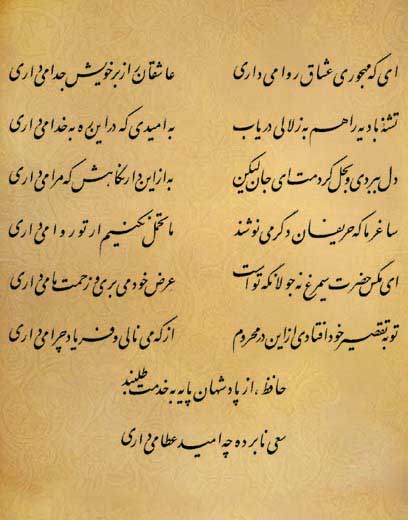 ای که مهجوری عشاق روا می داری عاشقان را ز بر خویش جدا می داری
تشنه بادیه را هم به زلالی دریاب به امیدی که در این ره به خدا می داری
دل ببردی و بحل کردمت ای جان لیکن به از این دار نگاهش که مرا می داری
ساغر ما که حریفان دگر می نوشند ما تحمل نکنیم ار تو روا می داری
ای مگس حضرت سیمرغ نه جولانگه توست عرض خود می بری و زحمت ما می داری
تو به تقصیر خود افتادی از این در محروم از که می نالی و فریاد چرا می داری
حافظ ، از پادشهان پایه به خدمت طلبند
سعی نابرده چه امید عطا می داری